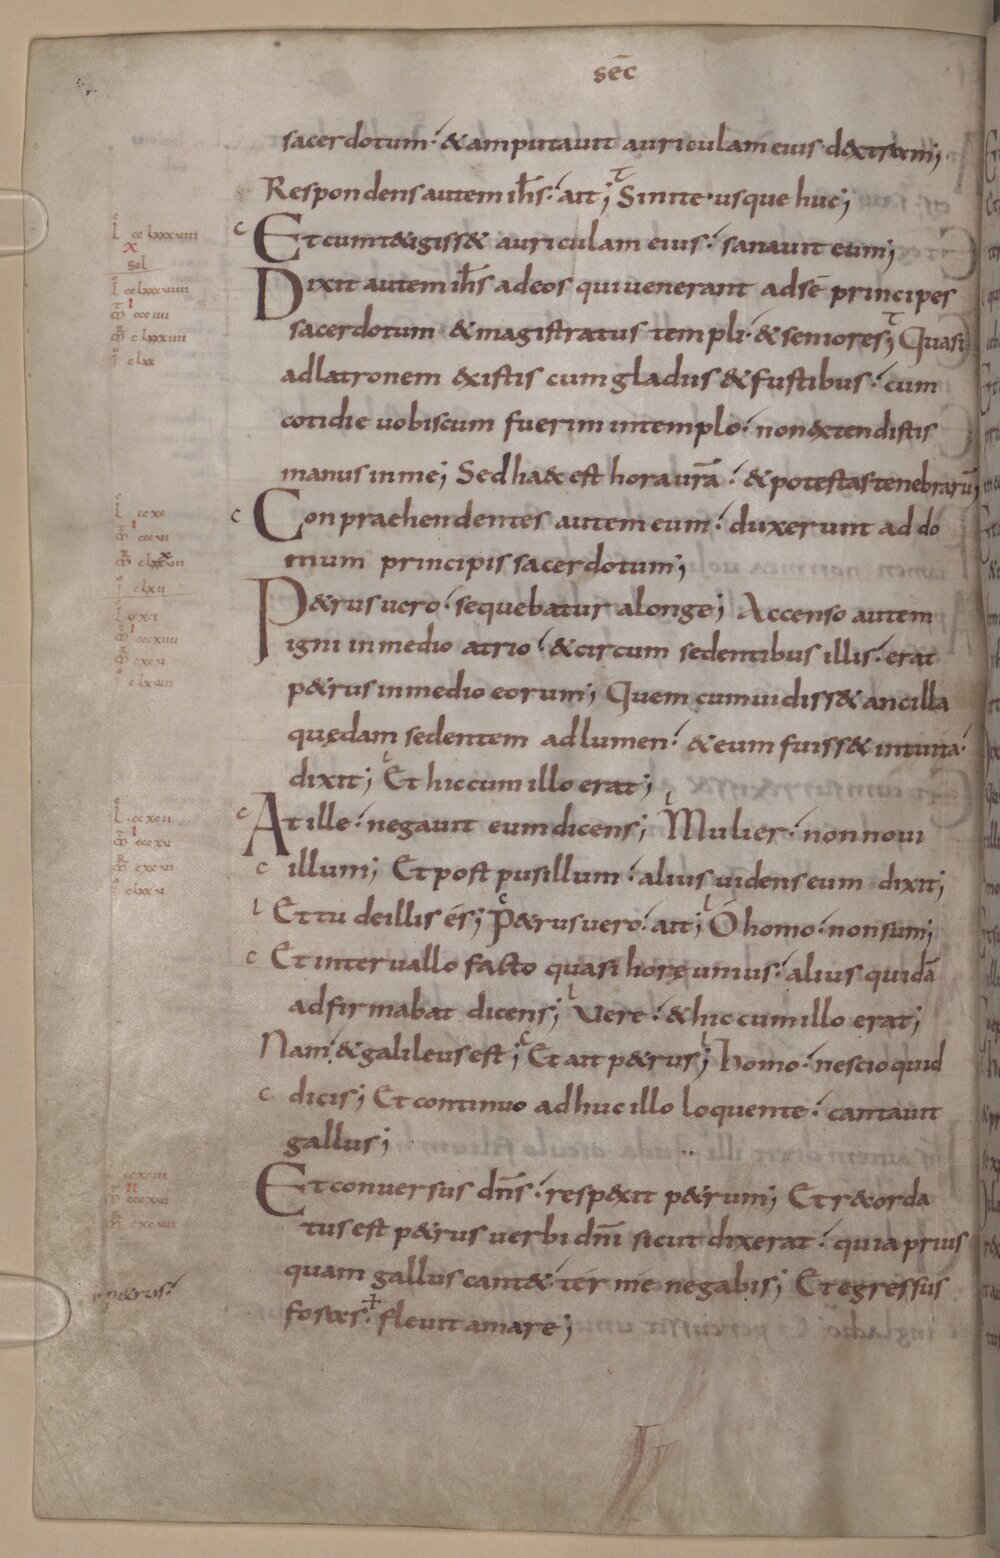 sēc
sacerdotum & amputauit auriculam eius d&xtram;
Respondens autem ih̄s ait; Sinite usque huc;
c Et cum t&igiss& auriculam eius sanauit eum;
Dixit autem ih̄s ad eos qui uenerant ad sē principes
sacerdotum & magistratus templi & seniores; Quasi
ad latronem &xistis cum gladiis & fustibus cum
cotidie uobiscum fuerim in templo non &xtendistis
manus in me; Sed haec est hora ur̄a & potestas tenebrarū;
c Conpraehendentes autem eum duxerunt ad do
mum principis sacerdotum;
P&rus uero sequebatur a longe; Accenso autem
igni in medio atrio & circum sedentibus illis erat
p&rus in medio eorum; Quem cum uidiss& ancilla
quędam sedentem ad lumen & eum fuiss& intuita
dixit; Et hic cum illo erat;
c At ille negauit eum dicens; Mulier non noui
c illum; Et post pusillum alius uidens eum dixit;
l Et tu de illis és; P&rus uero ait; O homo non sum;
c Et interuallo facto quasi horę unius alius quidā
adfirmabat dicens; Uere & hic cum illo erat;
Nam & galileus est; Et ait p&rus; Homo nescio quid
c dicis; Et continuo adhuc illo loquente cantauit
gallus;
Et conuersus dn̄s resp&xit p&rum; Et r&corda
tus est p&rus uerbi dn̄i sicut dixerat quia prius
quam gallus cant& tér me negabis; Et egressus
foras fleuit amare;
p&rus